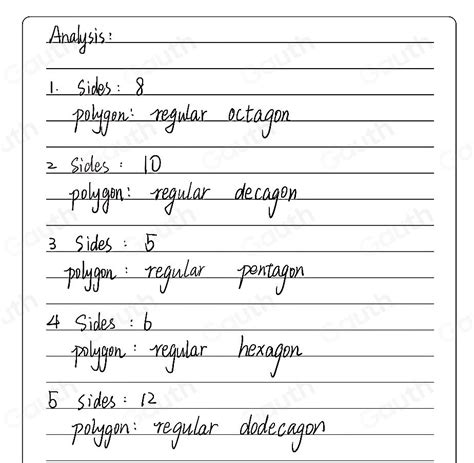 Analysis:
1. Sides: 8
polygon: regular octagon
2 Sides: 10
polygon: regular decagon
3 Sides: 5
polygon: regular pentagon
4 Sides: 6
polygon: regular hexagon
5 sides: 12
polygon: regular dodecagon
Gauth